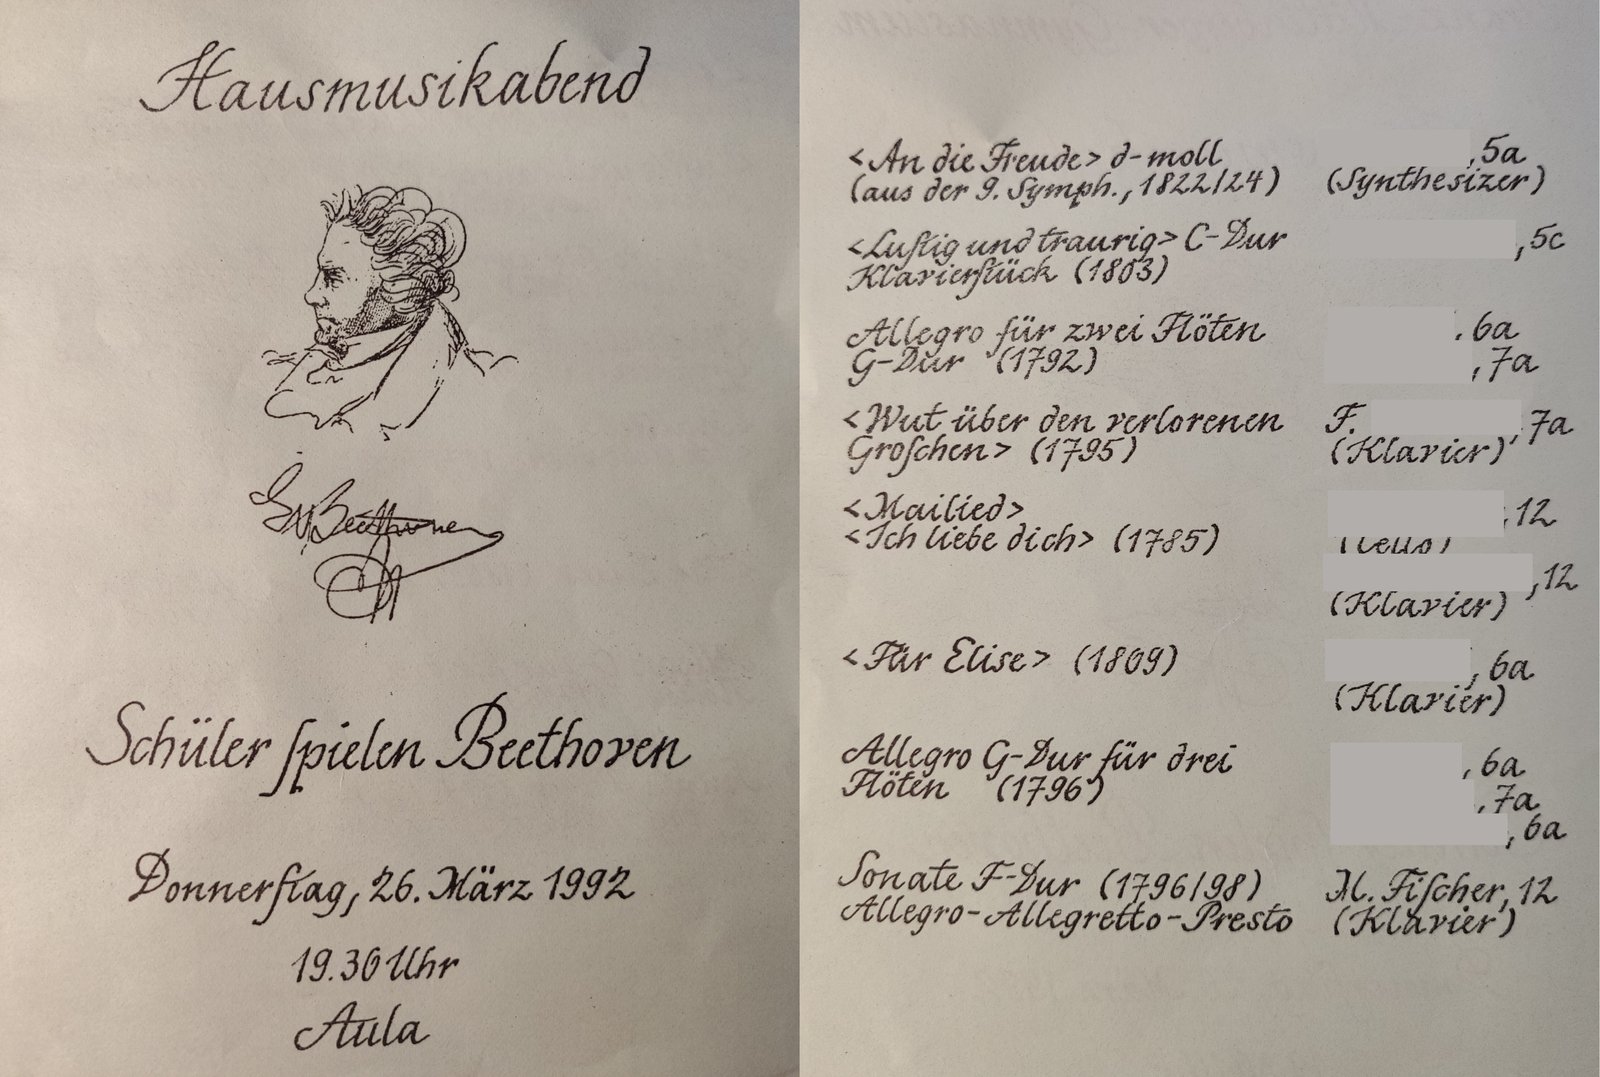 Hausmusikabend
L. v. Beethoven
Schüler spielen Beethoven
Donnerstag, 26. März 1992
19.30 Uhr
Aula
<An die Freude> d-moll , 5a
(aus der 9. Symph., 1822/24) (Synthesizer)
<Lustig und traurig> C-Dur , 5c
Klavierstück (1803)
Allegro für zwei Flöten , 6a
G-Dur (1792) , 7a
<Wut über den verlorenen F. , 7a
Groschen> (1795) (Klavier)
<Mailied> , 12
<Ich liebe dich> (1785) (Cello)
, 12
(Klavier)
<Für Elise> (1809) , 6a
(Klavier)
Allegro G-Dur für drei , 6a
Flöten (1796) , 7a
, 6a
Sonate F-Dur (1796/98) M. Fischer, 12
Allegro-Allegretto-Presto (Klavier)